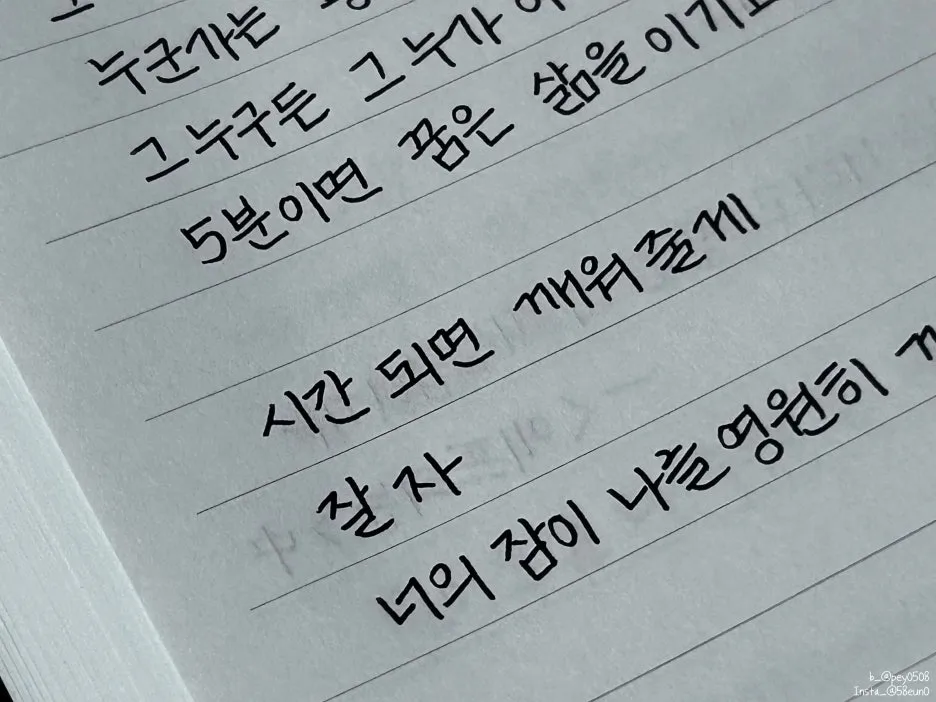 누군가는
그 누구든 그 누가
5분이면 꿈은 삶을 이기고
시간 되면 깨워 줄게
잘 자
너의 잠이 나를 영원히
b_@pey0508
Insta_@58eun0